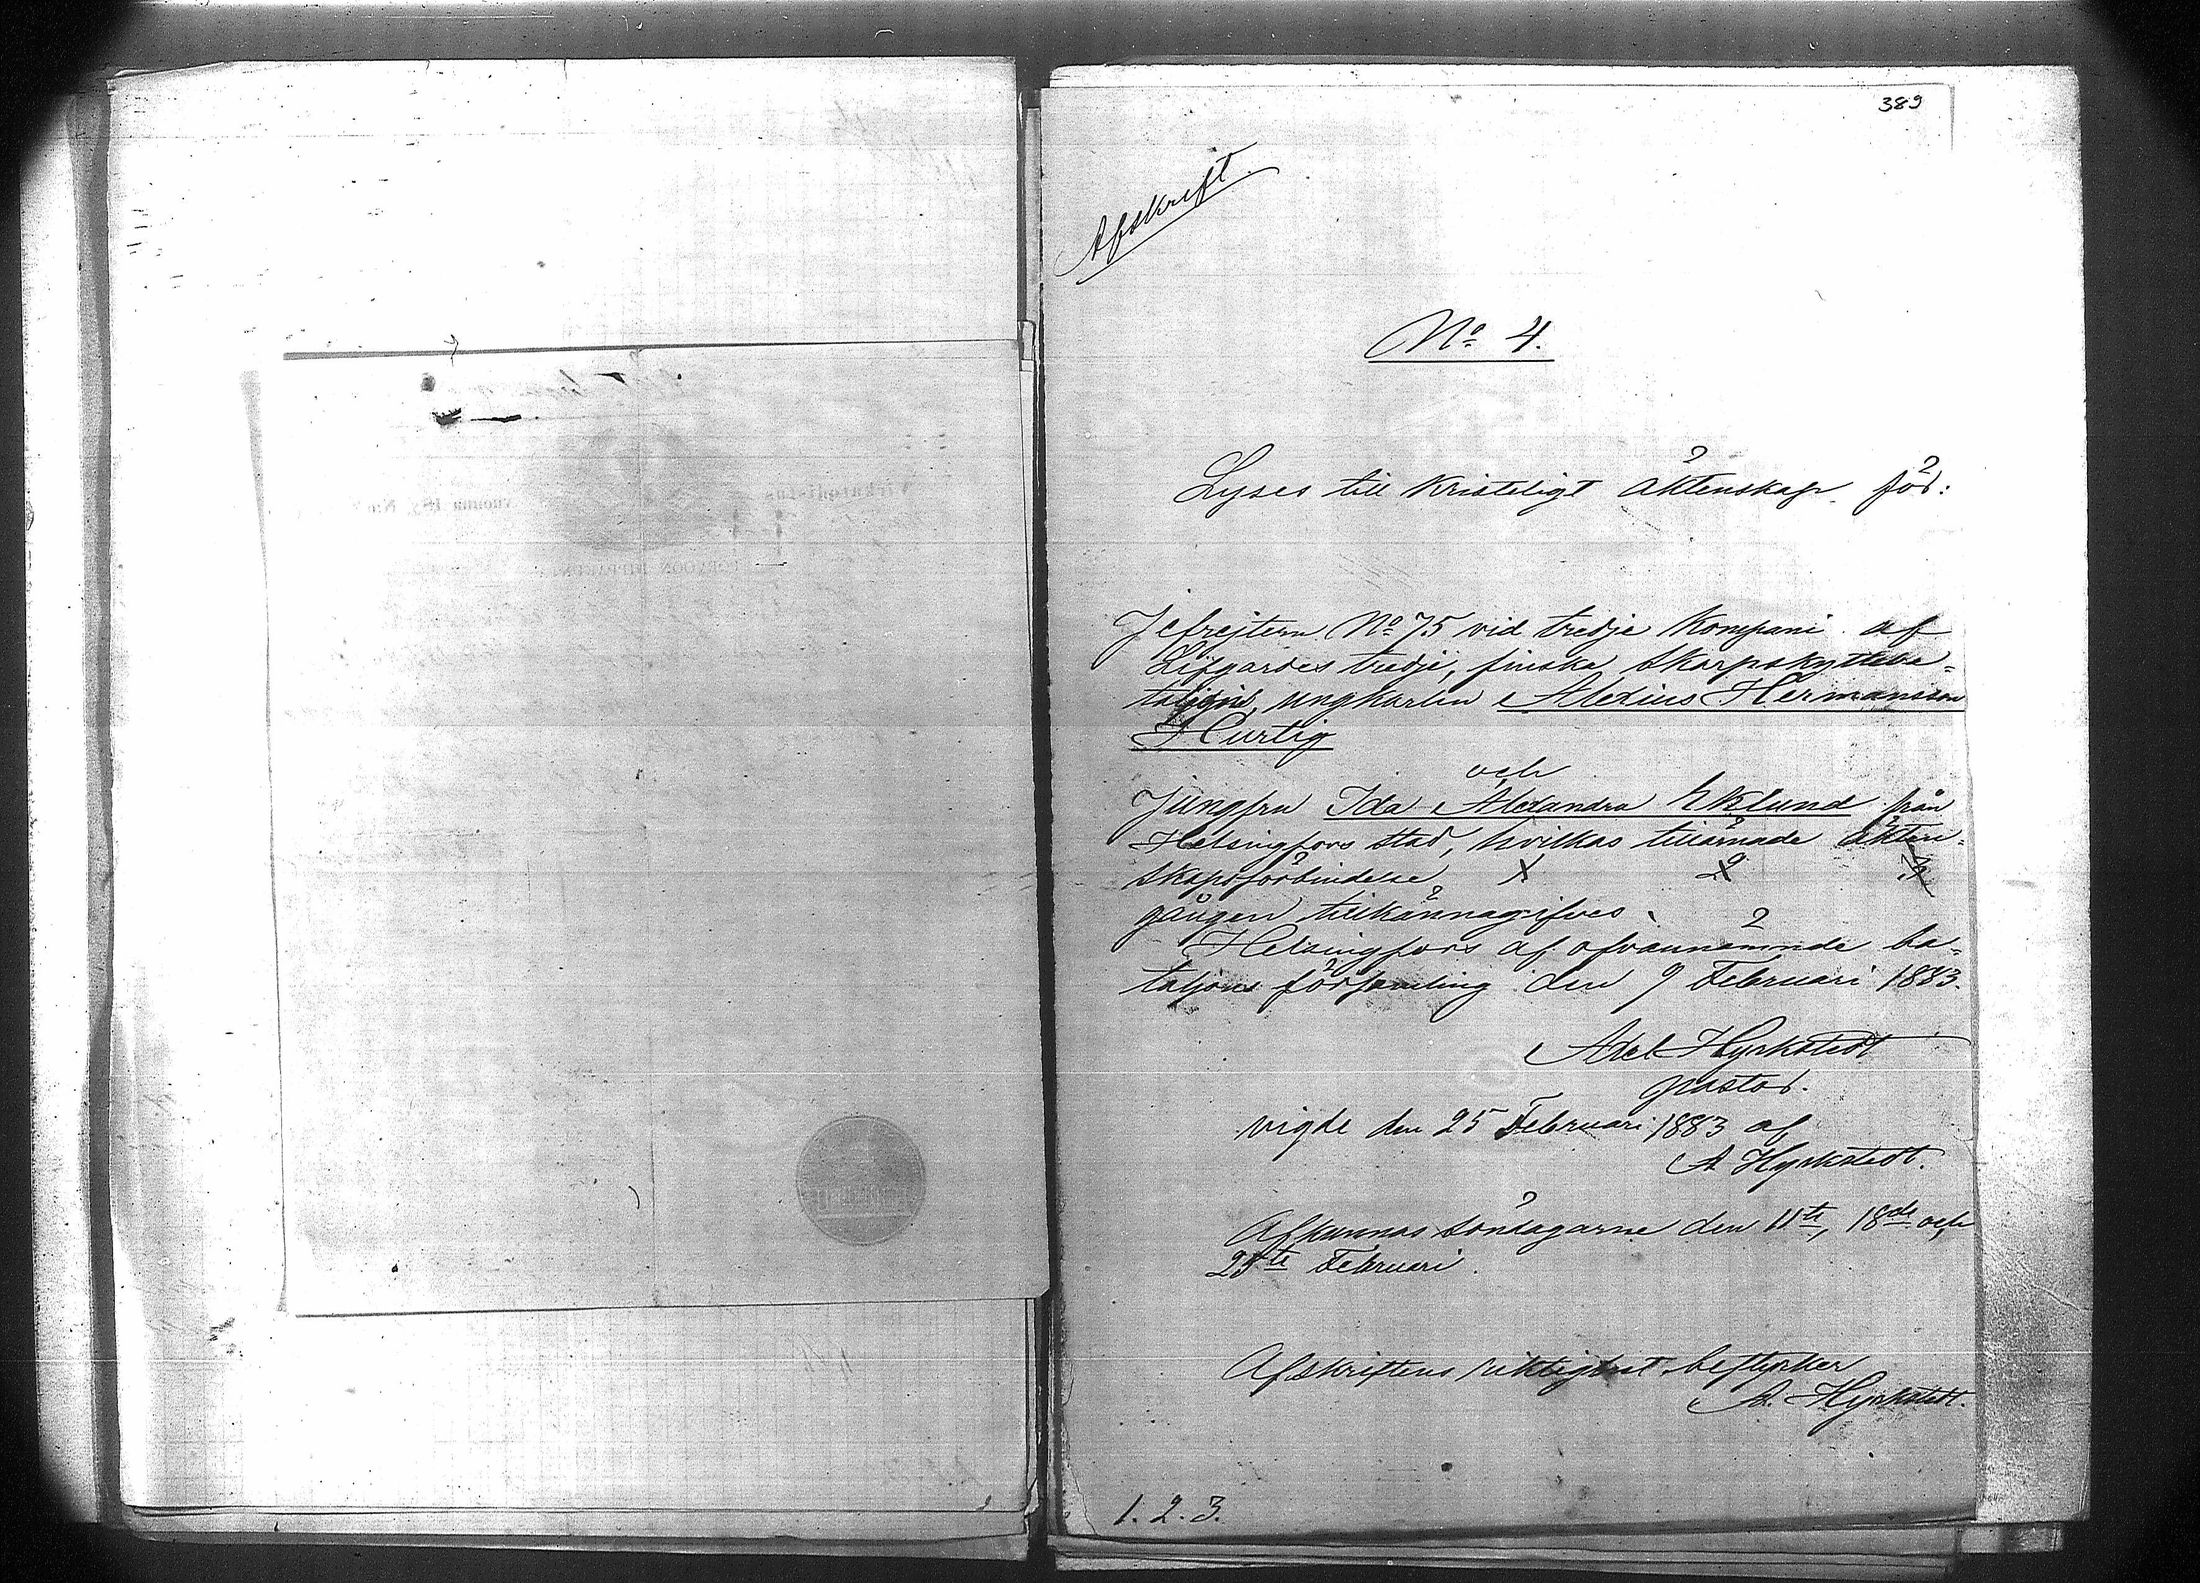 389
Afskrift.
No 4.
Lyses till kristeligt äktenskap för:
Jefrejtern No 75 vid tredje kompani af
Lifgardes tredje, finska skarpskytteba-
taljons, ungkarlen Alexius Hermansson
Hurtig
och
Jungfru Ida Alexandra Eklund från
Helsingfors stad, hvilkas tillärnade äkten-
skapsförbindelse 1 2 3
gången tillkännagifves.
Helsingfors af ofvannämnde ba-
taljons församling den 9 Februari 1883.
Axel Hyrkstedt
pastor.
vigde den 25 Februari 1883 af
A Hyrkstedt.
Afkunnas söndagarne den 11te, 18de och
25te Februari.
Afskriftens riktighet bestyrker
A. Hyrkstedt.
1. 2. 3.